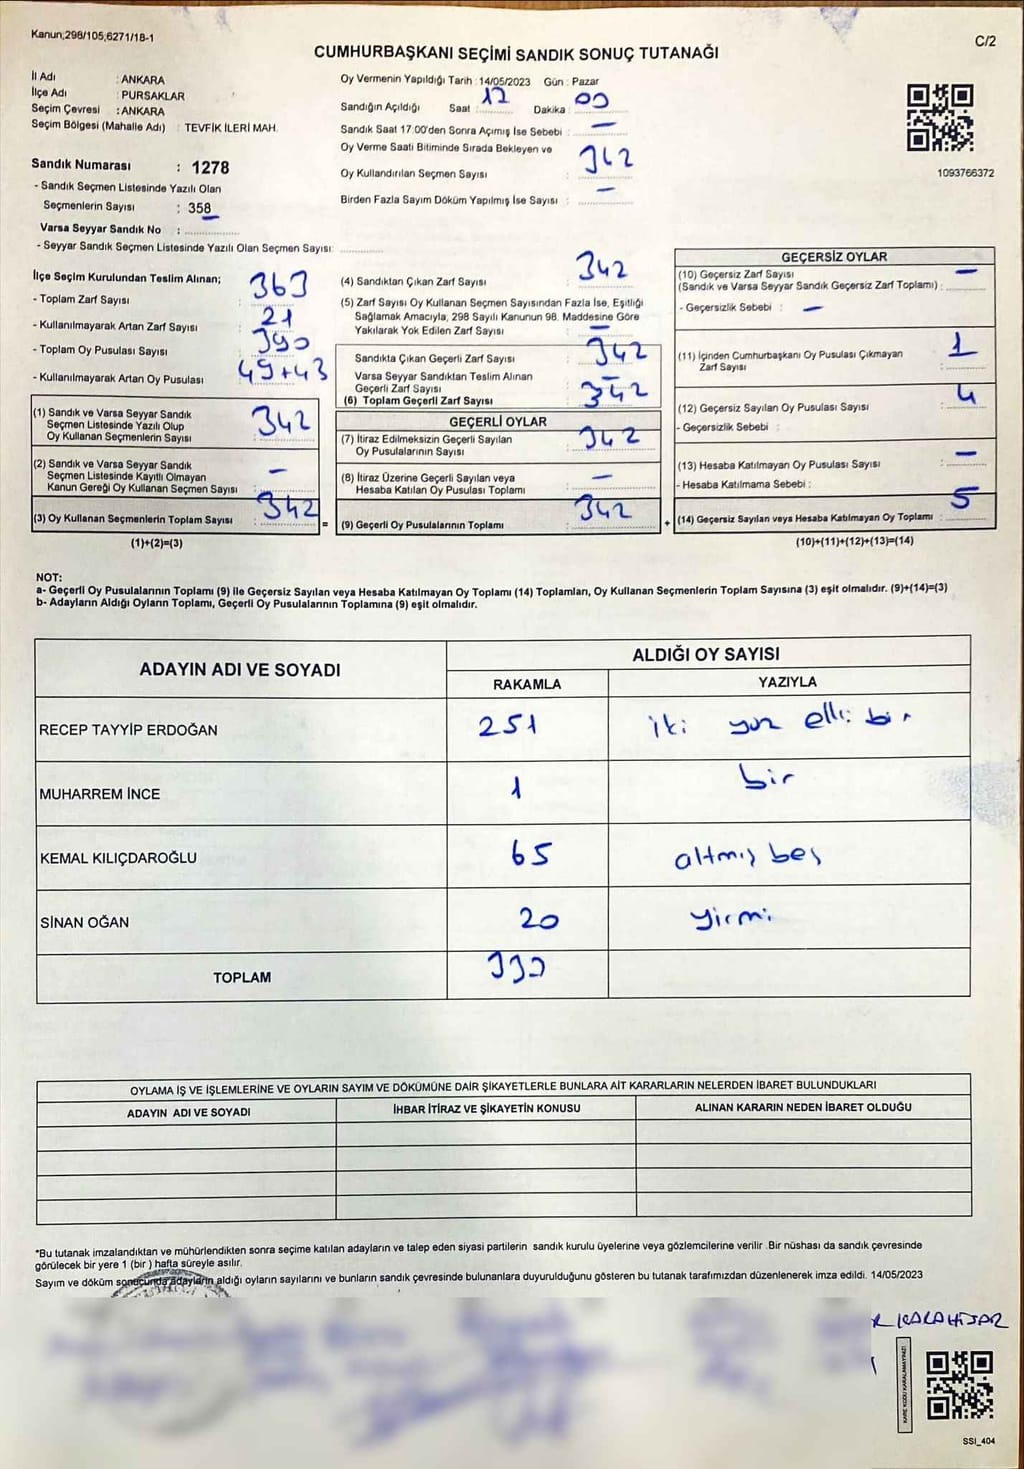 Kanun;298/105,6271/18-1
C/2
CUMHURBAŞKANI SEÇİMİ SANDIK SONUÇ TUTANAĞI
İl Adı : ANKARA
İlçe Adı : PURSAKLAR
Seçim Çevresi : ANKARA
Seçim Bölgesi (Mahalle Adı) : TEVFİK İLERİ MAH.
Oy Vermenin Yapıldığı Tarih : 14/05/2023 Gün : Pazar
Sandığın Açıldığı Saat : 17 Dakika : 00
Sandık Saat 17:00'den Sonra Açımış İse Sebebi : —
Oy Verme Saati Bitiminde Sırada Bekleyen ve
Oy Kullandırılan Seçmen Sayısı : 342
Birden Fazla Sayım Döküm Yapılmış İse Sayısı : —
1093766372
Sandık Numarası : 1278
- Sandık Seçmen Listesinde Yazılı Olan
Seçmenlerin Sayısı : 358
Varsa Seyyar Sandık No :
- Seyyar Sandık Seçmen Listesinde Yazılı Olan Seçmen Sayısı:
İlçe Seçim Kurulundan Teslim Alınan;
- Toplam Zarf Sayısı 363
- Kullanılmayarak Artan Zarf Sayısı 21
- Toplam Oy Pusulası Sayısı 390
- Kullanılmayarak Artan Oy Pusulası 49+43
(1) Sandık ve Varsa Seyyar Sandık
Seçmen Listesinde Yazılı Olup
Oy Kullanan Seçmenlerin Sayısı : 342
(2) Sandık ve Varsa Seyyar Sandık
Seçmen Listesinde Kayıtlı Olmayan
Kanun Gereği Oy Kullanan Seçmen Sayısı : —
(3) Oy Kullanan Seçmenlerin Toplam Sayısı : 342 =
(1)+(2)=(3)
(4) Sandıktan Çıkan Zarf Sayısı : 342
(5) Zarf Sayısı Oy Kullanan Seçmen Sayısından Fazla İse, Eşitliği
Sağlamak Amacıyla, 298 Sayılı Kanunun 98. Maddesine Göre
Yakılarak Yok Edilen Zarf Sayısı : —
Sandıkta Çıkan Geçerli Zarf Sayısı : 342
Varsa Seyyar Sandıktan Teslim Alınan
Geçerli Zarf Sayısı : —
(6) Toplam Geçerli Zarf Sayısı : 342
GEÇERLİ OYLAR
(7) İtiraz Edilmeksizin Geçerli Sayılan
Oy Pusulalarının Sayısı : 342
(8) İtiraz Üzerine Geçerli Sayılan veya
Hesaba Katılan Oy Pusulası Toplamı : —
(9) Geçerli Oy Pusulalarının Toplamı : 342 +
GEÇERSİZ OYLAR
(10) Geçersiz Zarf Sayısı —
(Sandık ve Varsa Seyyar Sandık Geçersiz Zarf Toplamı) :
- Geçersizlik Sebebi : —
(11) İçinden Cumhurbaşkanı Oy Pusulası Çıkmayan
Zarf Sayısı : 1
(12) Geçersiz Sayılan Oy Pusulası Sayısı : 4
- Geçersizlik Sebebi :
(13) Hesaba Katılmayan Oy Pusulası Sayısı : —
- Hesaba Katılmama Sebebi :
(14) Geçersiz Sayılan veya Hesaba Katılmayan Oy Toplamı : 5
(10)+(11)+(12)+(13)=(14)
NOT:
a- Geçerli Oy Pusulalarının Toplamı (9) ile Geçersiz Sayılan veya Hesaba Katılmayan Oy Toplamı (14) Toplamları, Oy Kullanan Seçmenlerin Toplam Sayısına (3) eşit olmalıdır. (9)+(14)=(3)
b- Adayların Aldığı Oyların Toplamı, Geçerli Oy Pusulalarının Toplamına (9) eşit olmalıdır.
ADAYIN ADI VE SOYADI ALDIĞI OY SAYISI
RAKAMLA YAZIYLA
RECEP TAYYİP ERDOĞAN 251 iki yüz elli bir
MUHARREM İNCE 1 bir
KEMAL KILIÇDAROĞLU 65 altmış beş
SİNAN OĞAN 20 yirmi
TOPLAM
OYLAMA İŞ VE İŞLEMLERİNE VE OYLARIN SAYIM VE DÖKÜMÜNE DAİR ŞİKAYETLERLE BUNLARA AİT KARARLARIN NELERDEN İBARET BULUNDUKLARI
ADAYIN ADI VE SOYADI İHBAR İTİRAZ VE ŞİKAYETİN KONUSU ALINAN KARARIN NEDEN İBARET OLDUĞU
*Bu tutanak imzalandıktan ve mühürlendikten sonra seçime katılan adayların ve talep eden siyasi partilerin sandık kurulu üyelerine veya gözlemcilerine verilir .Bir nüshası da sandık çevresinde
görülecek bir yere 1 (bir ) hafta süreyle asılır.
Sayım ve döküm sonucunda adayların aldığı oyların sayılarını ve bunların sandık çevresinde bulunanlara duyurulduğunu gösteren bu tutanak tarafımızdan düzenlenerek imza edildi. 14/05/2023
KARAHİSAR
KARE KODU KARALAMAYINIZ!
SSI_404